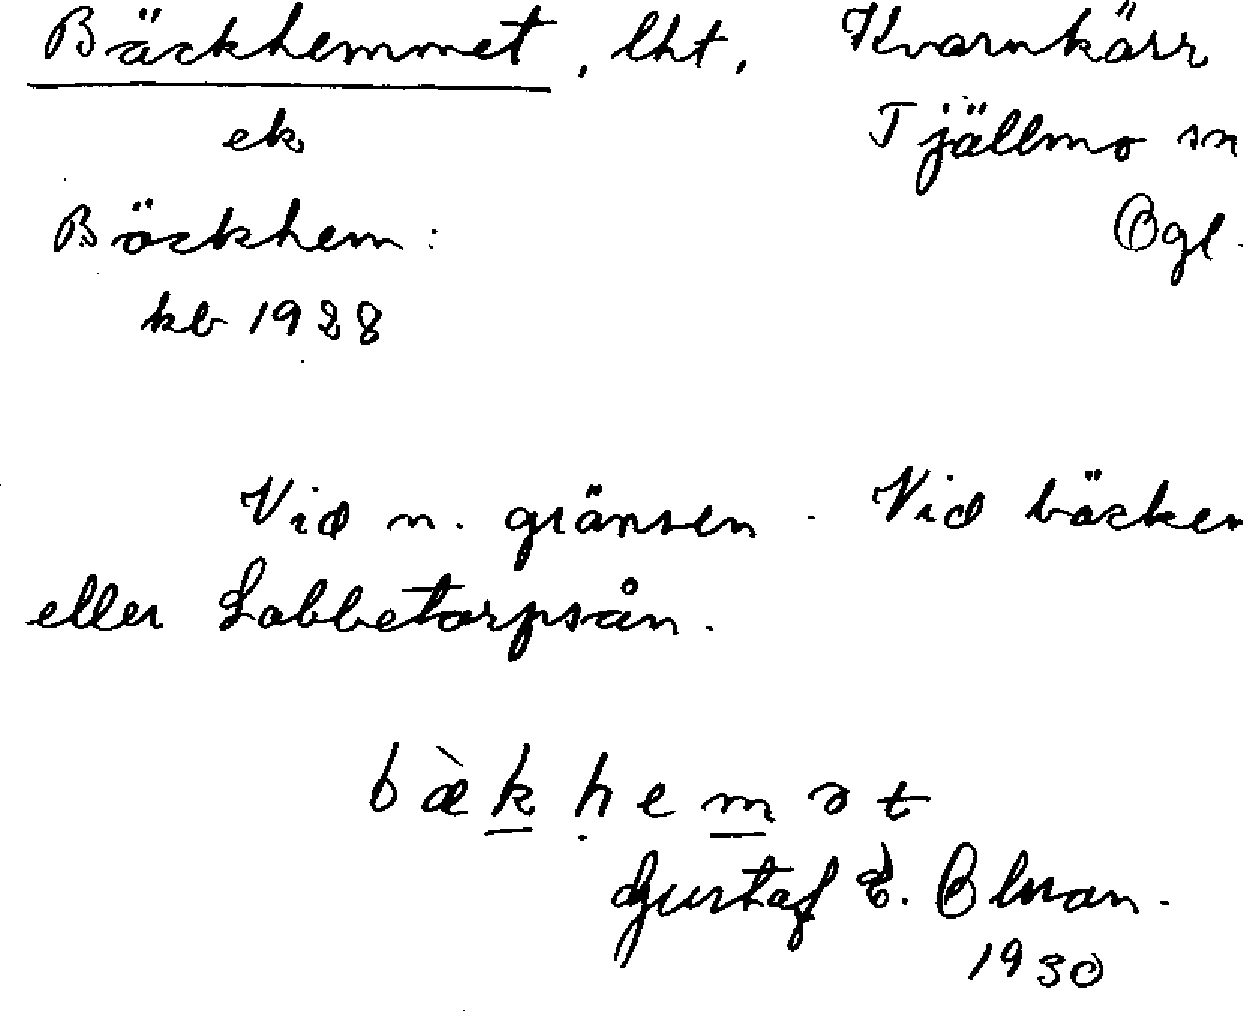 Bäckhemmet, lht, Kvarnkärr
ek Tjällmo sn
Bäckhem: Ögl.
kb 1928
Vid n. gränsen. Vid bäcken
eller Labbetorpsån.
bæ̀k̲ḥem̲ət
Gustaf E.
1930